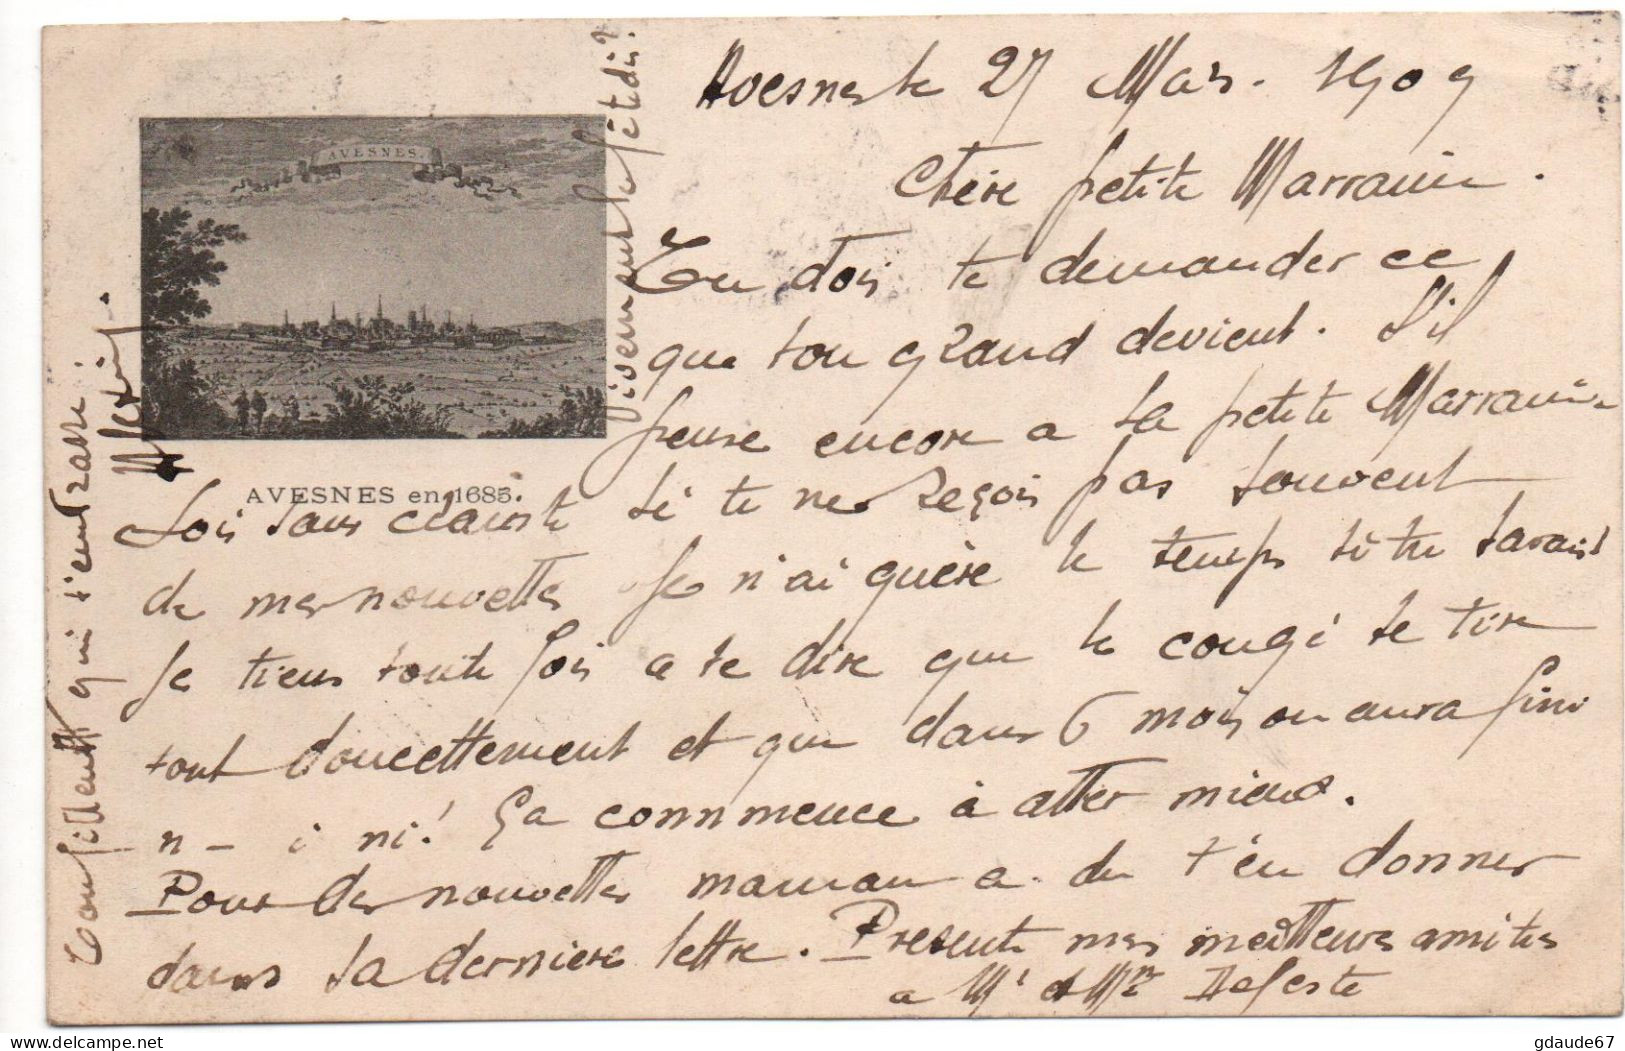 Avesnes le 27 Mars. 1909
Chère petite Marraine.
AVESNES.
Tu dois te demander ce
que ton grand devient. S'il
pense encore a sa petite Marraine
AVESNES en 1685.
Sois sans crainte si tu ne reçois pas souvent
de mes nouvelles Je n'ai guère le temps si tu savais
Je tiens toute fois a te dire que le congé se tire
tout doucettement et que dans 6 mois on aura fini
n - i ni! Ça commence à aller mieux.
Pour des nouvelles maman a du t'en donner
dans sa dernière lettre. Presente mes meilleures amities
a Mr et Mme
Ton filleul qui t'embrasse.
gdaude67